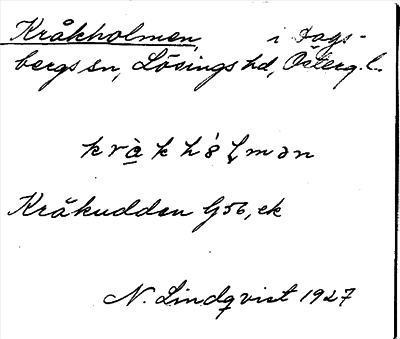 Kråkholmen, i Dags-
bergs sn, Lösings hd, Österg. l.
kràk hólmən
Kråkudden G56, ek
N. Lindqvist 1927